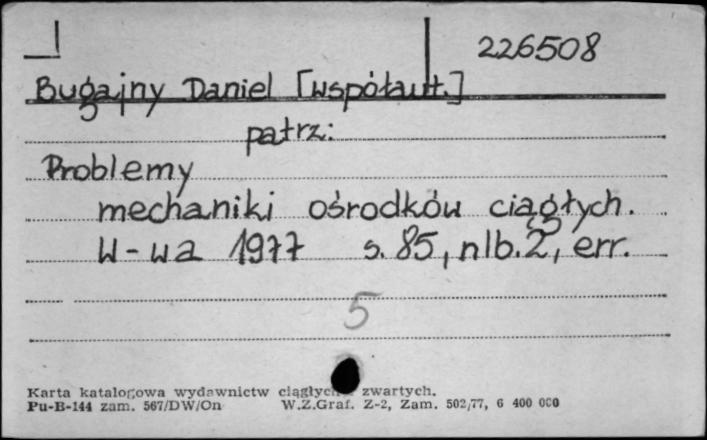 226508
Bugajny Daniel [współaut.]
patrz:
Problemy
mechaniki ośrodków ciągłych.
W-wa 1977 s. 85, nlb. 2, err.
5
Karta katalogowa wydawnictw ciągłych zwartych.
Pu-B-144 zam. 567/DW/On W.Z.Graf. Z-2, Zam. 502/77, 6 400 000